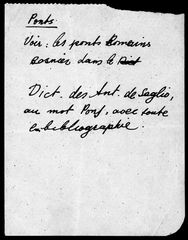 Ponts.
Voir : les ponts Romains
dans le
Dict. des Ant. de Saglio,
au mot Pons, avec toute
la bibliographie.